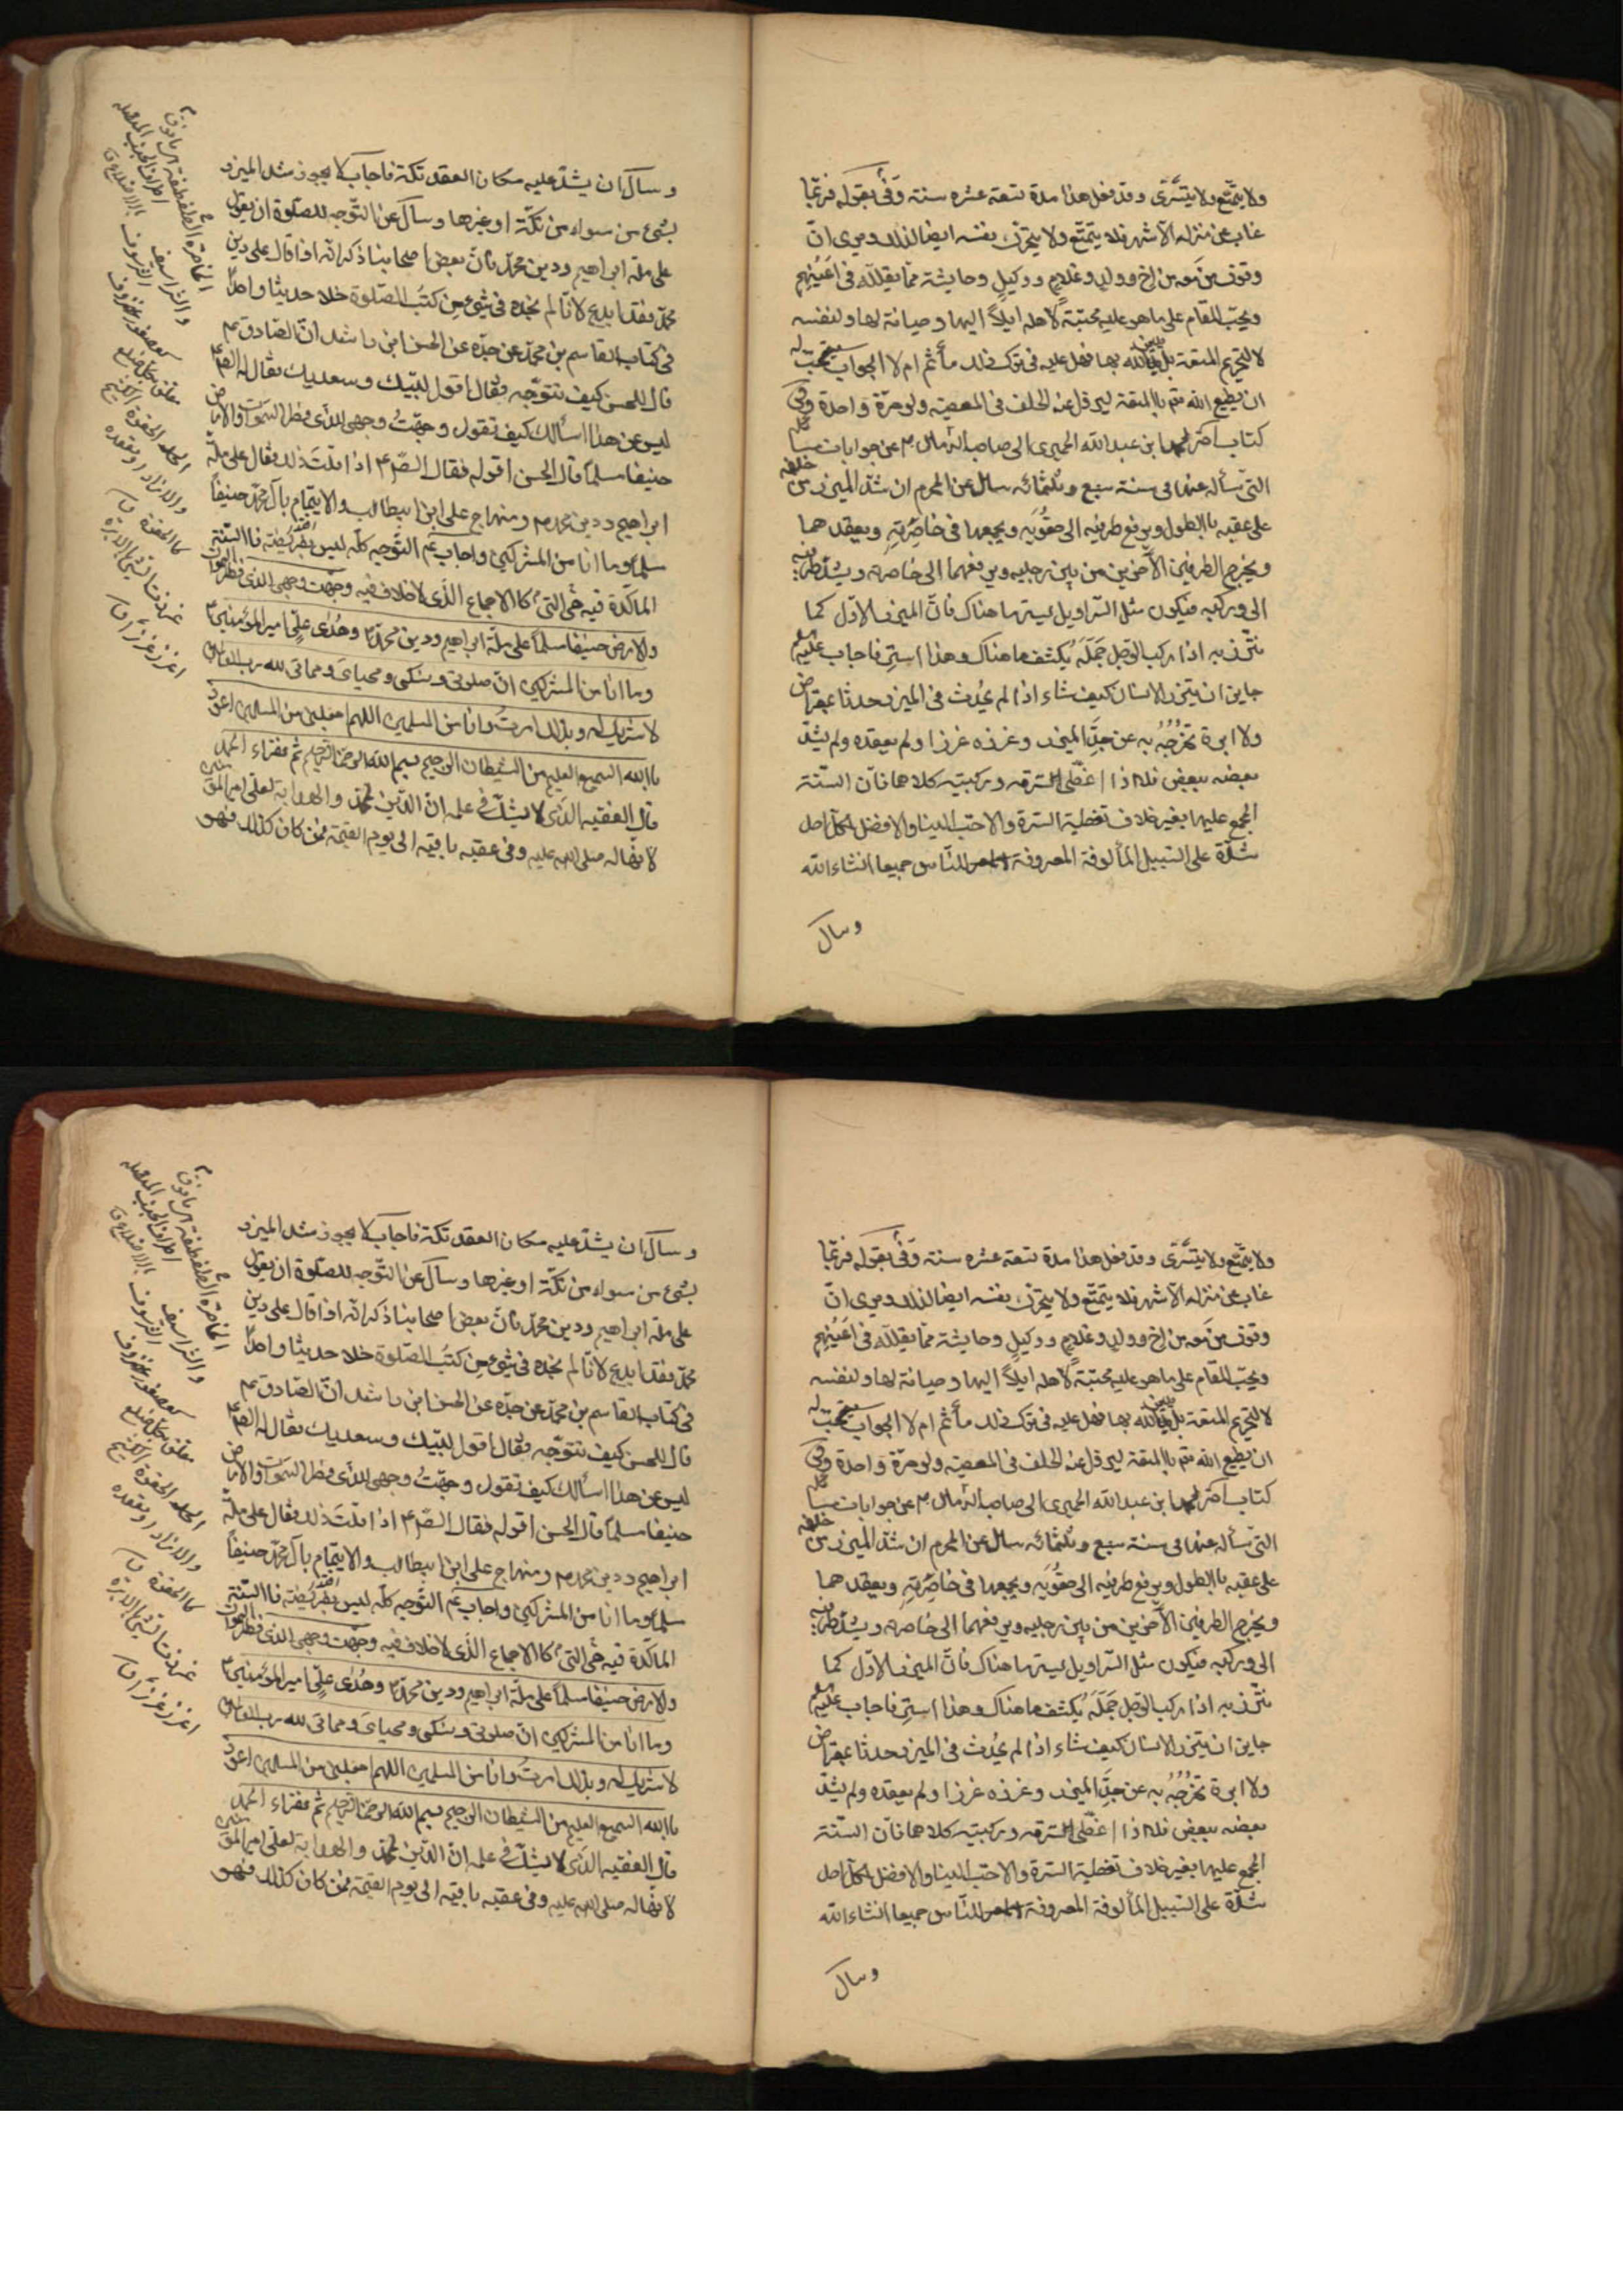 ولا يتمتع ولا يتسرى وقد فعل هذا مدة تسعة عشر سنة وفى بقوله فربما
غاب عن منزله الاشهر فلا يتمتع ولا يتحرك نفسه ايضا لذلك ويرى ان
وقوف من معه من اخ وولد وغلام ووكيل وحاشية مما يقلله فى اعينهم
ويحب المقام على ما هو عليه محبة لاهله وميلا اليها وصيانة لها ولنفسه
لا لتحريم المتعة بل يدين الله بها فهل عليه فى ترك ذلك مأثم ام لا الجواب يستحب له
ان يطيع الله تم بالمتعة ليزول عنه الحلف فى المعصية ولو مرة واحدة وفى
كتاب اخر لمحمد ابن عبد الله الحميرى الى صاحب الزمان م عن جوابات مسائله
التى سأله عنها فى سنة سبع وثلثمائه سال عن المحرم ان شد الميزر من خلفه
على عقبه باالطول ويرفع طرفيه الى حقويه ويجمعها فى خاصرته ويعقدهما
ويخرج الطرفين الآخرين من بين رجليه ويرفعهما الى خاصرته ويشد طرفيه
الى وركيه فيكون مثل السراويل يستر ما هناك فان الميزر الاول كما
نتزر به اذا ركب الرجل جمله يكشف ما هناك وهذا استر فاجاب عليه
جايز ان يتزر الانسان كيف شاء اذا لم يحدث فى الميزر حدثا بمقراض
ولا ابرة تخرجه به عن حد الميزر وغرزه غرزا ولم يعقده ولم يشد
بعضه ببعض فلا اذا غطى السرته وركبتيه كلاهما فان السنة
المجمع عليها بغير خلاف تغطية السرة والاحب الينا والافضل لكل احد
شدة على السبيل المألوفة المعروفة للناس جميعا انشاء الله
وسال
وسال ان يشد عليه مكان العقد تكة فاجاب لا يجوز شد الميزر
بشئ من سواه من تكة او غيرها وسال عن التوجه للصلوة ان يقول
على ملة ابراهيم ودين محمد فان بعض اصحابنا ذكر انه اذا قال على دين
محمد فقد ابدع لانا لم نجده فى شئ من كتب الصلوة خلا حديثا واحدا
فى كتاب القاسم بن محمد عن جده عن الحسن ابن راشد ان الصادق عم
قال للحسن كيف نتوجه فقال اقول لبيك وسعديك فقال له الصم
ليس عن هذا اسألك كيف تقول وجهت وجهى للذى فطر السموات والارض
حنيفا مسلما قال الحسن اقوله فقال الصم اذا قلت ذلك فقال على ملة
ابراهيم ودين محمد م ومنهاج على ابن ابيطالب والايتمام بآل محمد حنيفا
مسلما وما انا من المشركين واجاب عم التوجه كله ليس بفريضة فاالسنة
الماكدة فيه هى التى كاالاجماع الذى لا خلاف فيه وجهت وجهى للذى فطر السموات
والارض حنيفا مسلما على ملة ابراهيم ودين محمد م وهدى على امير المؤمنين
وما انا من المشركين ان صلوتى ونسكى ومحياى ومماتى لله رب العالمين
لا شريك له وبذلك امرت وانا من المسلمين اللهم اجعلنى من المسلمين اعوذ
باالله السميع العليم من الشيطان الرجيم بسم الله الرحمن الرحيم ثم مقراء الحمد
قال الفقيه الذى لا يشك فى علمه ان الدين لمحمد والهداية لعلى امير المؤمنين
لانها له صلى الله عليه وفى عقبه باقية الى يوم القيمة فمن كان كذلك فهو
ولا يتمتع ولا يتسرى وقد فعل هذا مدة تسعة عشر سنة وفى بقوله فربما
غاب عن منزله الاشهر فلا يتمتع ولا يتحرك نفسه ايضا لذلك ويرى ان
وقوف من معه من اخ وولد وغلام ووكيل وحاشية مما يقلله فى اعينهم
ويحب المقام على ما هو عليه محبة لاهله وميلا اليها وصيانة لها ولنفسه
لا لتحريم المتعة بل يدين الله بها فهل عليه فى ترك ذلك مأثم ام لا الجواب يستحب له
ان يطيع الله تم بالمتعة ليزول عنه الحلف فى المعصية ولو مرة واحدة وفى
كتاب اخر لمحمد ابن عبد الله الحميرى الى صاحب الزمان م عن جوابات مسائله
التى سأله عنها فى سنة سبع وثلثمائه سال عن المحرم ان شد الميزر من خلفه
على عقبه باالطول ويرفع طرفيه الى حقويه ويجمعها فى خاصرته ويعقدهما
ويخرج الطرفين الآخرين من بين رجليه ويرفعهما الى خاصرته ويشد طرفيه
الى وركيه فيكون مثل السراويل يستر ما هناك فان الميزر الاول كما
نتزر به اذا ركب الرجل جمله يكشف ما هناك وهذا استر فاجاب عليه
جايز ان يتزر الانسان كيف شاء اذا لم يحدث فى الميزر حدثا بمقراض
ولا ابرة تخرجه به عن حد الميزر وغرزه غرزا ولم يعقده ولم يشد
بعضه ببعض فلا اذا غطى السرته وركبتيه كلاهما فان السنة
المجمع عليها بغير خلاف تغطية السرة والاحب الينا والافضل لكل احد
شدة على السبيل المألوفة المعروفة للناس جميعا انشاء الله
وسال
وسال ان يشد عليه مكان العقد تكة فاجاب لا يجوز شد الميزر
بشئ من سواه من تكة او غيرها وسال عن التوجه للصلوة ان يقول
على ملة ابراهيم ودين محمد فان بعض اصحابنا ذكر انه اذا قال على دين
محمد فقد ابدع لانا لم نجده فى شئ من كتب الصلوة خلا حديثا واحدا
فى كتاب القاسم بن محمد عن جده عن الحسن ابن راشد ان الصادق عم
قال للحسن كيف نتوجه فقال اقول لبيك وسعديك فقال له الصم
ليس عن هذا اسألك كيف تقول وجهت وجهى للذى فطر السموات والارض
حنيفا مسلما قال الحسن اقوله فقال الصم اذا قلت ذلك فقال على ملة
ابراهيم ودين محمد م ومنهاج على ابن ابيطالب والايتمام بآل محمد حنيفا
مسلما وما انا من المشركين واجاب عم التوجه كله ليس بفريضة فاالسنة
الماكدة فيه هى التى كاالاجماع الذى لا خلاف فيه وجهت وجهى للذى فطر السموات
والارض حنيفا مسلما على ملة ابراهيم ودين محمد م وهدى على امير المؤمنين
وما انا من المشركين ان صلوتى ونسكى ومحياى ومماتى لله رب العالمين
لا شريك له وبذلك امرت وانا من المسلمين اللهم اجعلنى من المسلمين اعوذ
باالله السميع العليم من الشيطان الرجيم بسم الله الرحمن الرحيم ثم مقراء الحمد
قال الفقيه الذى لا يشك فى علمه ان الدين لمحمد والهداية لعلى امير المؤمنين
لانها له صلى الله عليه وفى عقبه باقية الى يوم القيمة فمن كان كذلك فهو